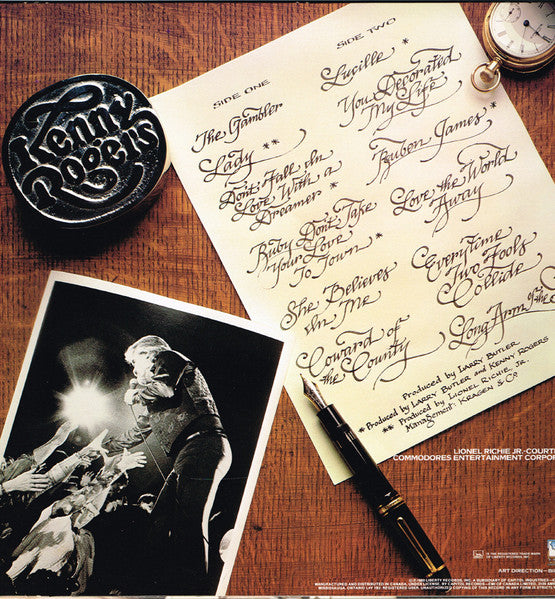 Kenny
Rogers
SIDE ONE
The Gambler
Lady **
Don't Fall In
Love With a
Dreamer *
Ruby Don't Take
Your Love
To Town *
She Believes
In Me
Coward of
the County
SIDE TWO
Lucille *
You Decorated
My Life
Reuben James *
Love the World
Away
Everytime
Two Fools
Collide
Long Arm of the
Produced by LARRY BUTLER
* Produced by LARRY BUTLER and KENNY ROGERS
** Produced by LIONEL RICHIE, JR.
Management: KRAGEN & CO.
LIONEL RICHIE JR.-COURT
COMMODORES ENTERTAINMENT CORPOR
ART DIRECTION–